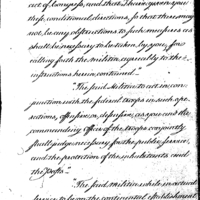 act of Congress, and that I have given you
these conditional directions, so that there may
not be any obstructions to such measures as
shall be necessary to be taken by you, for
calling forth the militia agreeably to the
instructions herein contained —
"The said militia to act in con-
junction with the federal troops in such oper-
ations, offensive or defensive, as you and the
commanding officer of the troops conjointly
shall judge necessary for the public service,
and the protection of the inhabitants and
the Posts. —
"The said militia while in actual
service to be on the continental establishment